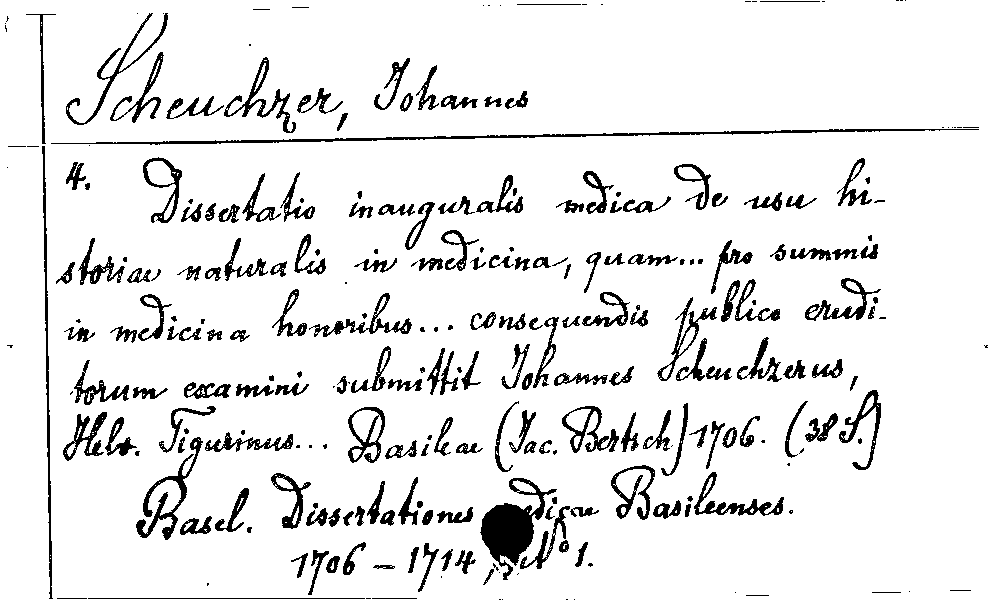 Scheuchzer, Johannes
4.
Dissertatio inauguralis medica de usu hi-
storiae naturalis in medicina, quam... pro summis
in medicina honoribus... consequendis publico erudi-
torum examini submittit Johannes Scheuchzerus,
Helv. Tigurinus... Basileae (Jac. Bertsch) 1706. (38 S.)
Basel. Dissertationes medicae Basileenses.
1706 – 1714, No 1.